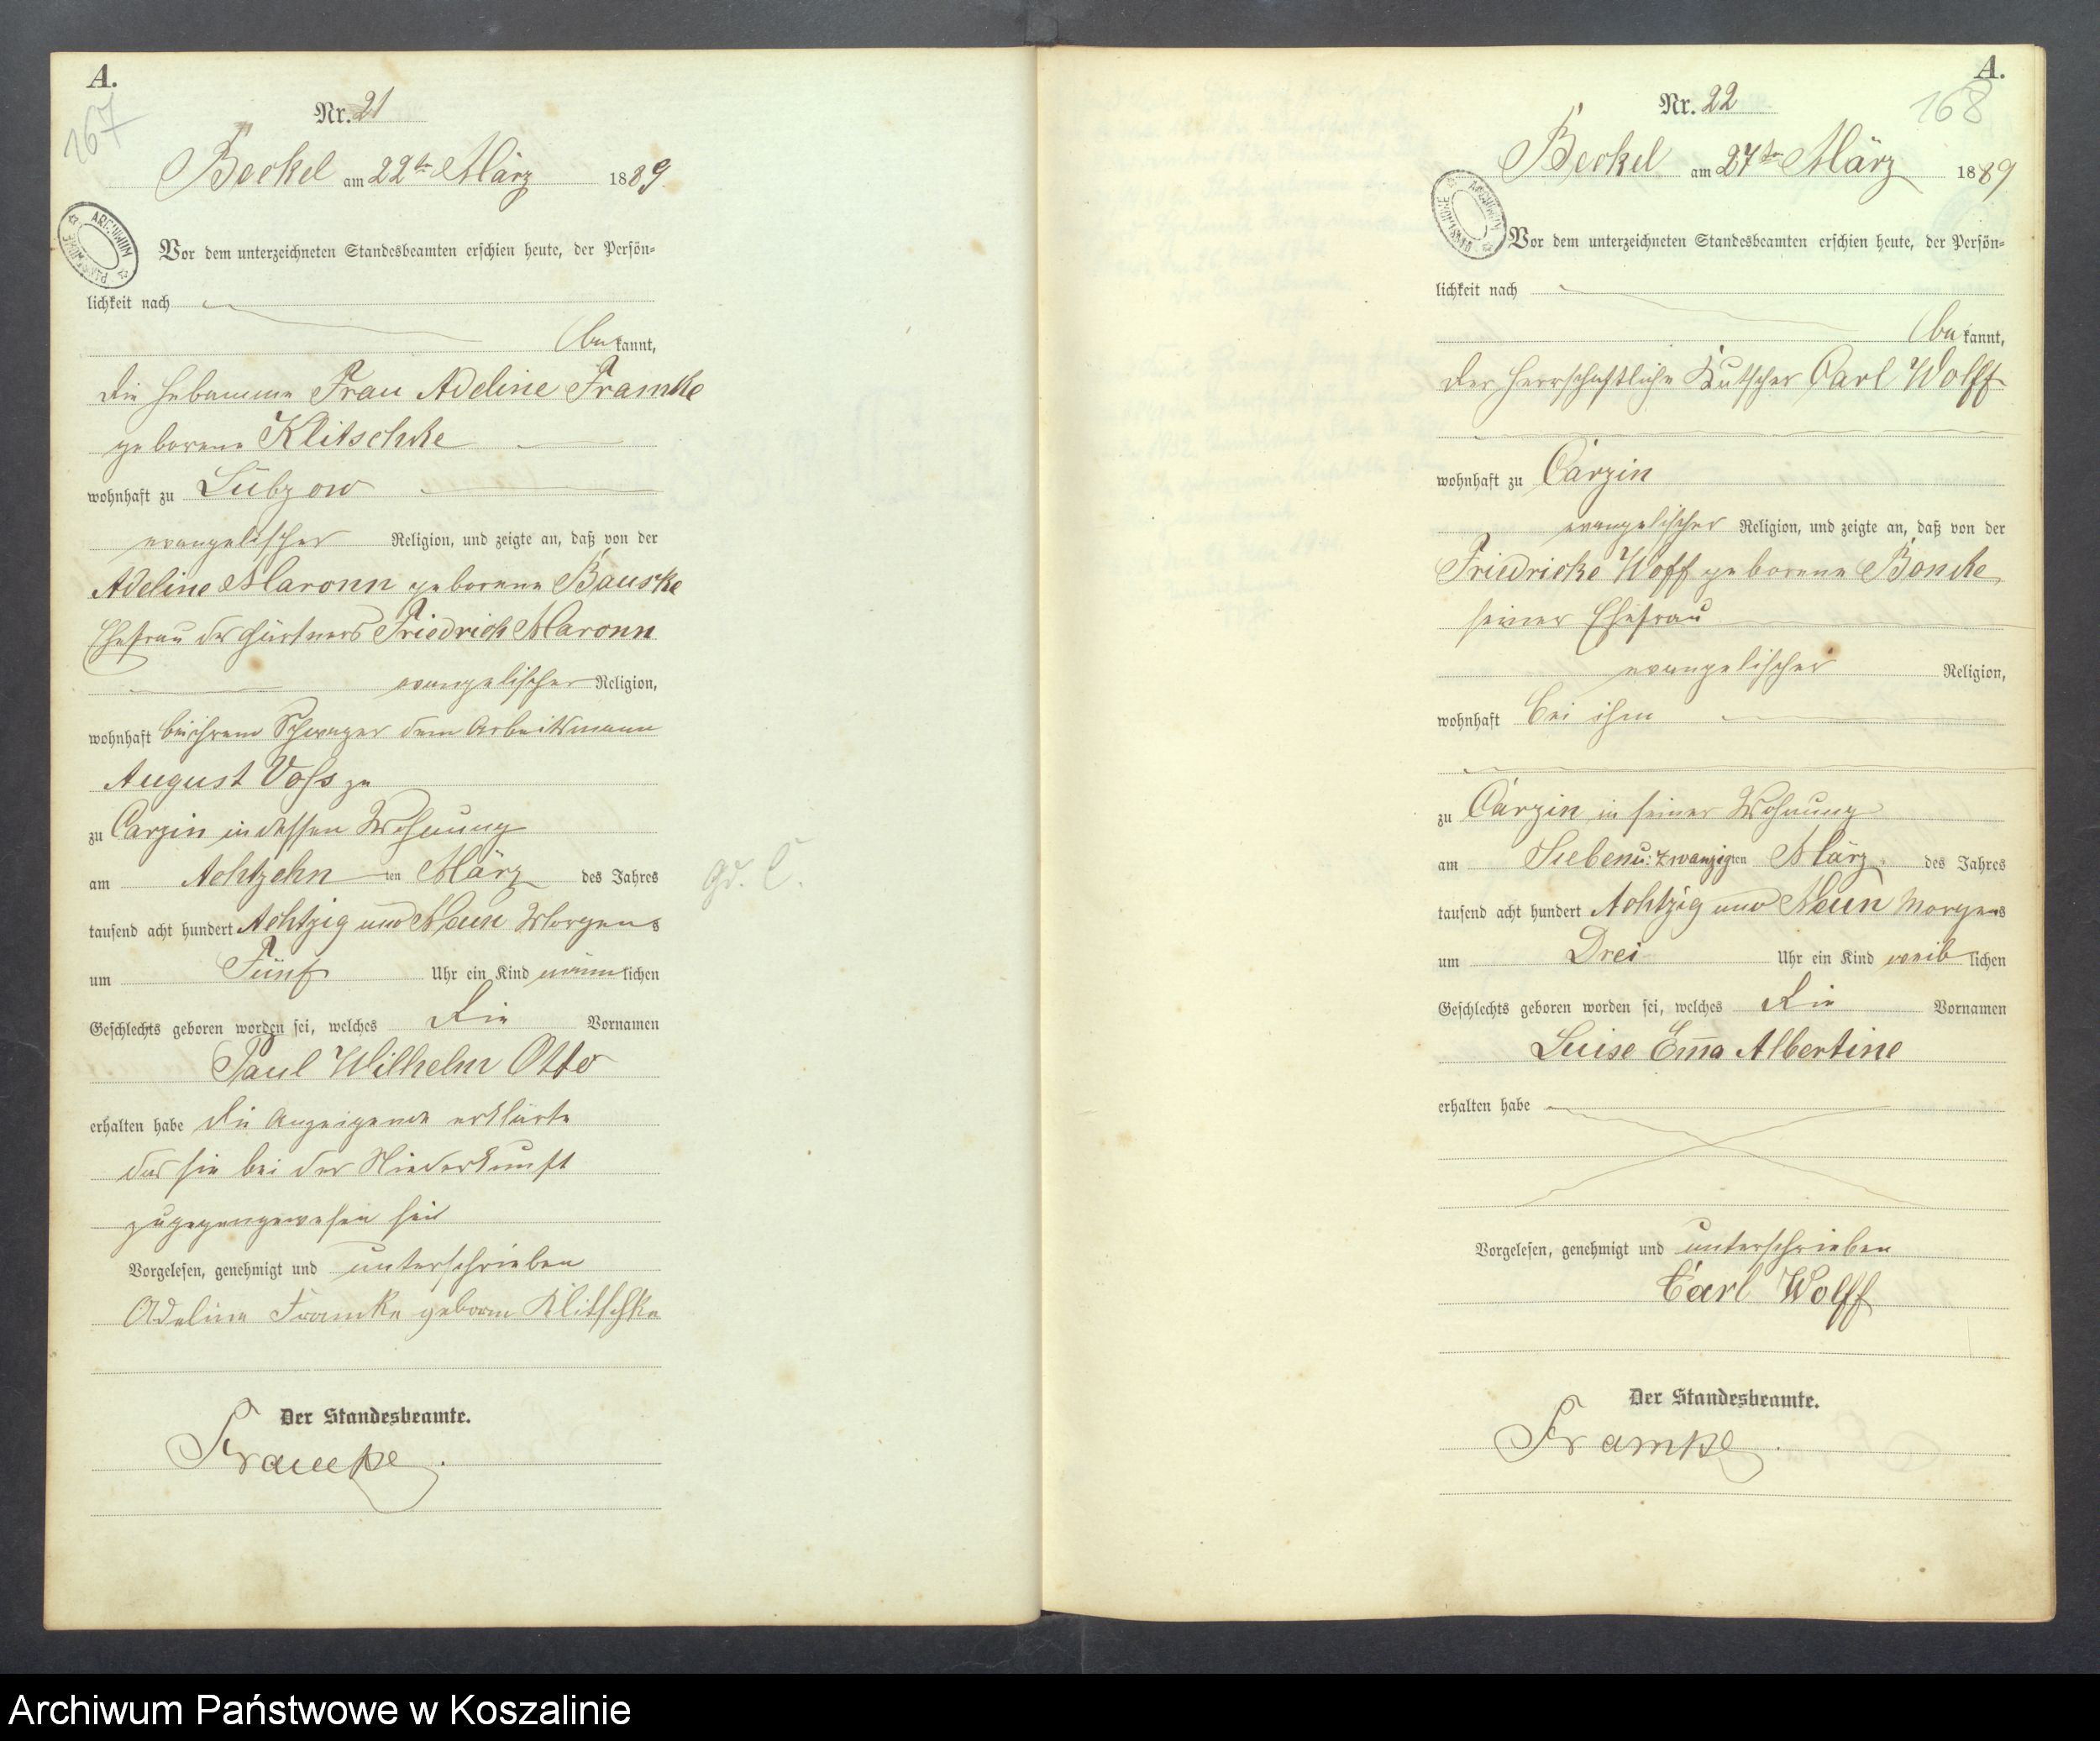 A.
167
Nr. 21
Beckel am 22ten März 1889
ARCHIWUM PAŃSTWOWE
Vor dem unterzeichneten Standesbeamten erschien heute, der Persön=
lichkeit nach
bekannt,
die Hebamme Frau Adeline Framke
geborene Klitschke
wohnhaft zu Lübzow
evangelischer Religion, und zeigte an, daß von der
Adeline Maronn geborene Bauske
Ehefrau des Gärtners Friedrich Maronn
evangelischer Religion,
wohnhaft bei ihrem Schwager dem Arbeitsmann
August Voss zu
zu Carzin in dessen Wohnung
am Achtzehnten März des Jahres
tausend acht hundert Achtzig und Neun Morgens
um Fünf Uhr ein Kind männlichen
Geschlechts geboren worden sei, welches die Vornamen
Paul Wilhelm Otto
erhalten habe die Anzeigende erklärte
das sie bei der Niederkunft
zugegengewesen sei
Vorgelesen, genehmigt und unterschrieben
Adeline Framke geboren Klitschke
Der Standesbeamte.
Framke.
Gd. C.
A.
168
Nr. 22
Beckel am 27ten März 1889
ARCHIWUM PAŃSTWOWE
Vor dem unterzeichneten Standesbeamten erschien heute, der Persön=
lichkeit nach
bekannt,
der herrschaftliche Kutscher Carl Wolff
wohnhaft zu Carzin
evangelischer Religion, und zeigte an, daß von der
Friedricke Woff geborene Boncke,
seiner Ehefrau
evangelischer Religion,
wohnhaft bei ihm
zu Carzin in seiner Wohnung
am Siebenu: zwanzigten März des Jahres
tausend acht hundert Achtzig und Neun Morgens
um Drei Uhr ein Kind weiblichen
Geschlechts geboren worden sei, welches die Vornamen
Luise Em̄a Albertine
erhalten habe
Vorgelesen, genehmigt und unterschrieben
Carl Wolff
Der Standesbeamte.
Framke.
Archiwum Państwowe w Koszalinie